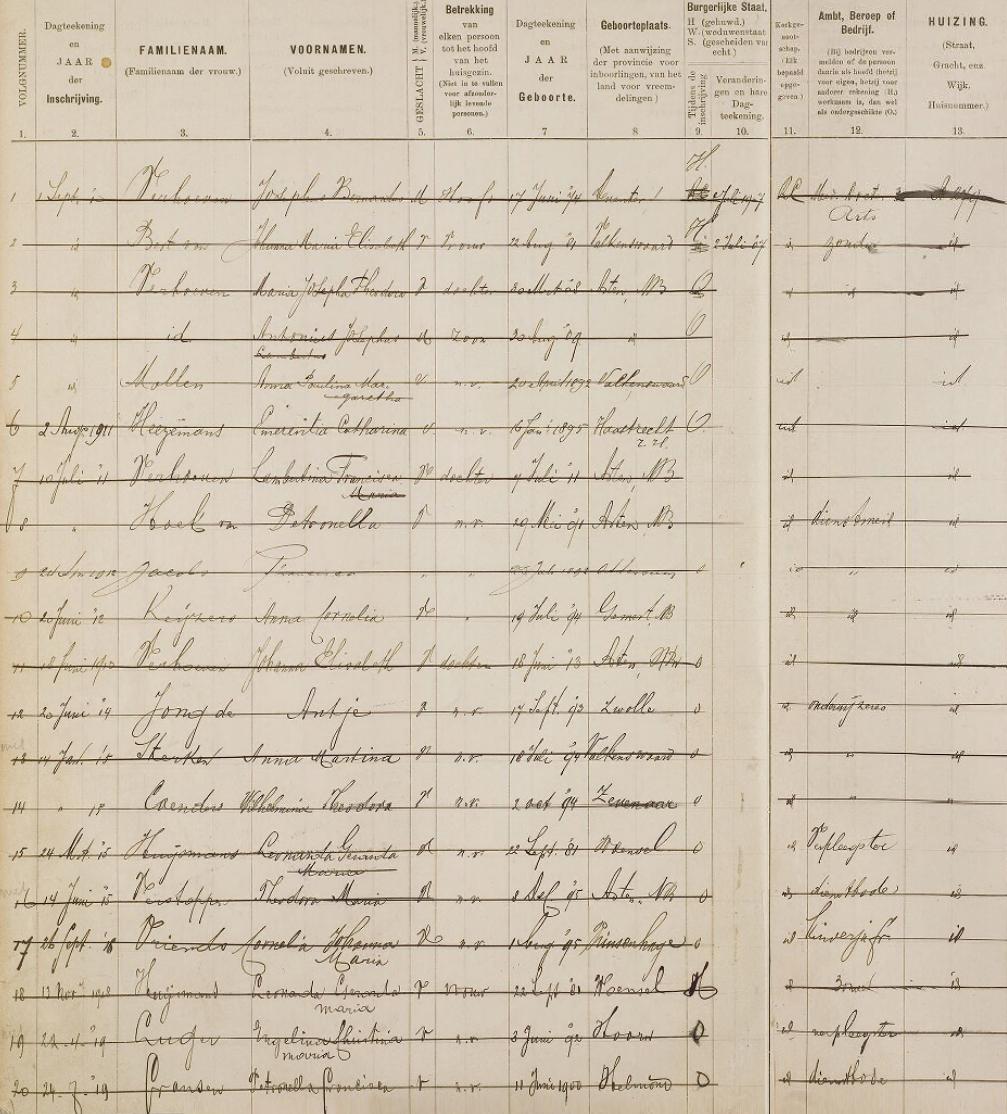 VOLGNUMMER.
Dagteekening
en
JAAR
der
Inschrijving.
FAMILIENAAM.
(Familienaam der vrouw.)
VOORNAMEN.
(Voluit geschreven.)
GESLACHT M. (mannelijk.) V. (vrouwelijk.)
Betrekking
van
elken persoon
tot het hoofd
van het
huisgezin.
(Niet in te vullen
voor afzonder-
lijk levende
personen.)
Dagteekening
en
JAAR
der
Geboorte.
Geboorteplaats.
(Met aanwijzing
der provincie voor
inboorlingen, van het
land voor vreem-
delingen)
Burgerlijke Staat.
H (gehuwd.)
W. (weduwenstaat
S. (gescheiden va
echt)
Tijdens de inschrijving
Veranderin-
gen en hare
Dag-
teekening.
Kerkge-
noot-
schap.
(Elk
bepaald
opge-
geven.)
Ambt, Beroep of
Bedrijf.
(Bij bedrijven ver-
melden of de persoon
daarin als hoofd (hetzij
voor eigen, hetzij voor
anderer rekening (H.)
werkzaam is, dan wel
als ondergeschikte (O.)
HUIZING.
(Straat,
Gracht, enz.
Wijk,
Huisnummer.)
1. 2. 3. 4. 5. 6. 7 8 9. 10. 11. 12. 13.
H.
1 Sept. Verhoeven Josephus Bernardus M Hoofd 17 Juni '74 Deventer
Arts
2 id Best van Johanna Maria Elisabeth V Vrouw Valkenswaard H 2 Juli '07 id zonder id
3 id Verhoeven Maria Josepha Theodora V dochter Asten, NB O id id id
4 id id Antonius Josephus M Zoon 30 Aug '09 id O id id
Lambertus
5 id Mollen Anna Paulina Mar- V n.v. 20 April 1892 Valkenswaard O id id
garetha
6 2 Aug. 1911 Emerentia Catharina v n.v. Jan' 1895 Haastrecht O. id id
Z.H.
7 10 Juli '11 Verhoeven Lambertina Francisca V dochter 7 Juli '11 Asten, NB id id
Maria
8 " Hoek van Petronella V n.v. 29 Mei '91 Asten, NB id dienstmeid id
9 Jacobs Francisca " " Juli 1892 o id " id
10 20 Juni '12 Keijzers Anna Cornelia V " 19 Juli '94 Gemert, NB id id id
11 18 Juni 1913 Verhoeven Johanna Elisabeth V dochter 18 Juni '13 Asten, NBr o id id
12 20 Juni '14 Jong de Antje V n.v. 17 Sept. '93 Zwolle o id onderwijzeres id
13 14 Jan. '15 Sterken Anna Martina V n.v. 18 Juli '94 Valkenswaard o id " id
14 " 15 Coenders Wilhelmina Theodora V n.v. 2 Oct '94 Zevenaar o id " "
15 24 Mrt. '15 Huijsmans Leonarda Gerarda V n.v. 22 Sept. '81 Woensel O id Verpleegster id
Maria
16 14 Juni '15 Verstappen Theodora Maria V n.v. 8 Dec '95 Asten, NB O id dienstbode id
17 26 Sept. '18 Vriends Cornelia Johanna V n.v. 1 Aug '95 Prinsenhage o id kinderjuffr id
Maria
18 13 Nov. 1918 Huijsmans Leonarda Gerarda V Vrouw 22 Sept '81 Woensel H id Zonder id
Maria
19 22-4-'19 Engelina Christina V n.v. 3 Juni '92 Hoorn O id verpleegster id
Maria
20 24-7-'19 Fransen Petronella Francisca V n.v. 11 Juni 1900 Helmond O id dienstbode id